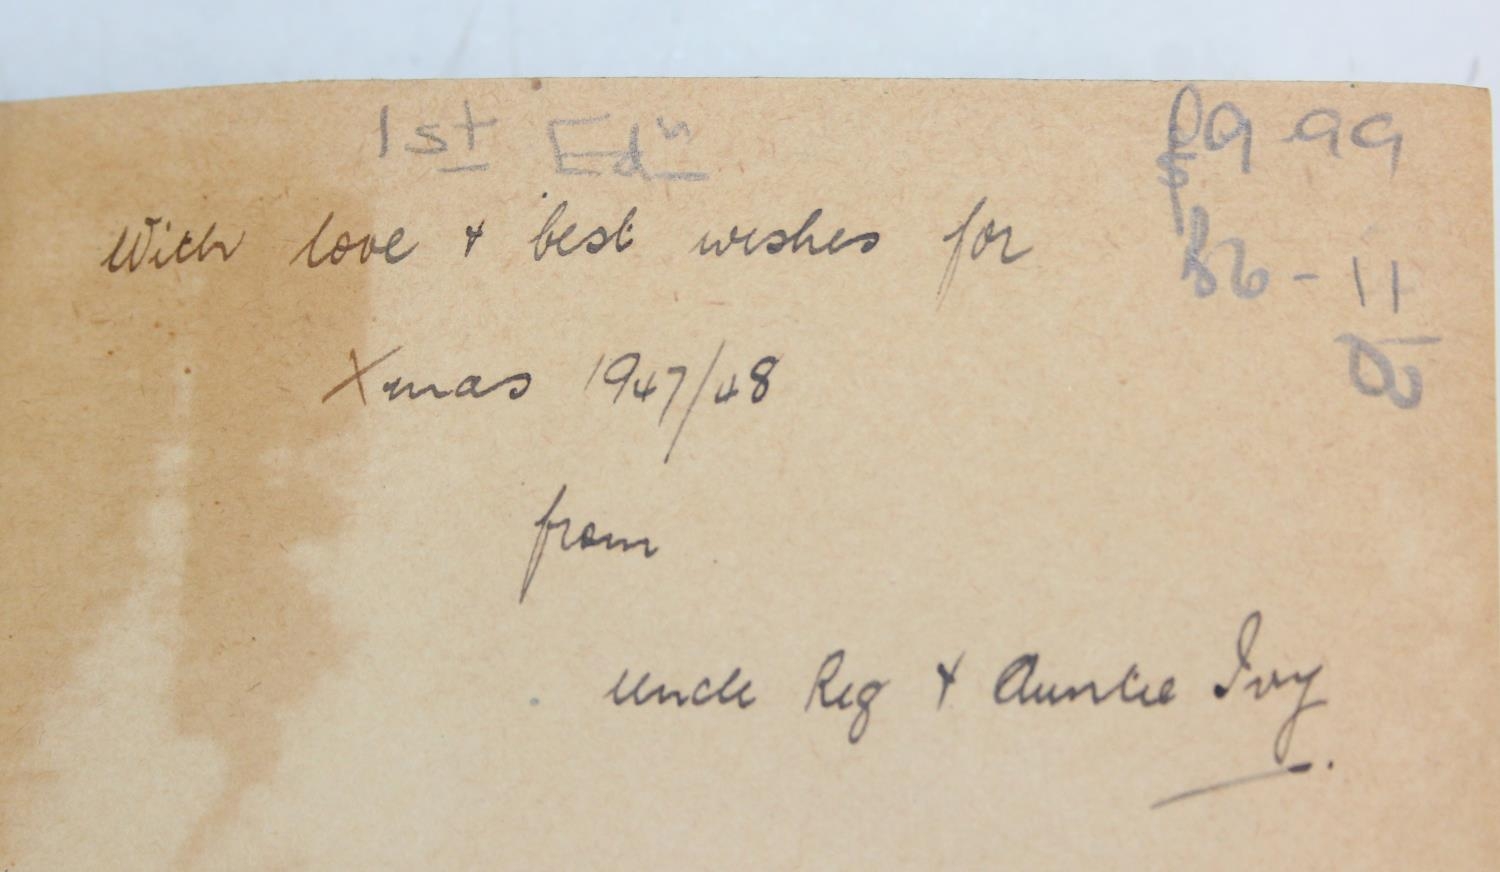 1st Edn
£9-99
86-11
With love & best wishes for
Xmas 1947/48
from
Uncle Reg & Auntie Ivy